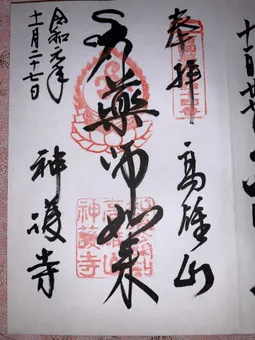 奉拝
高雄山
薬師如来
神護寺
令和元年
十一月二十七日
高雄山
神護寺